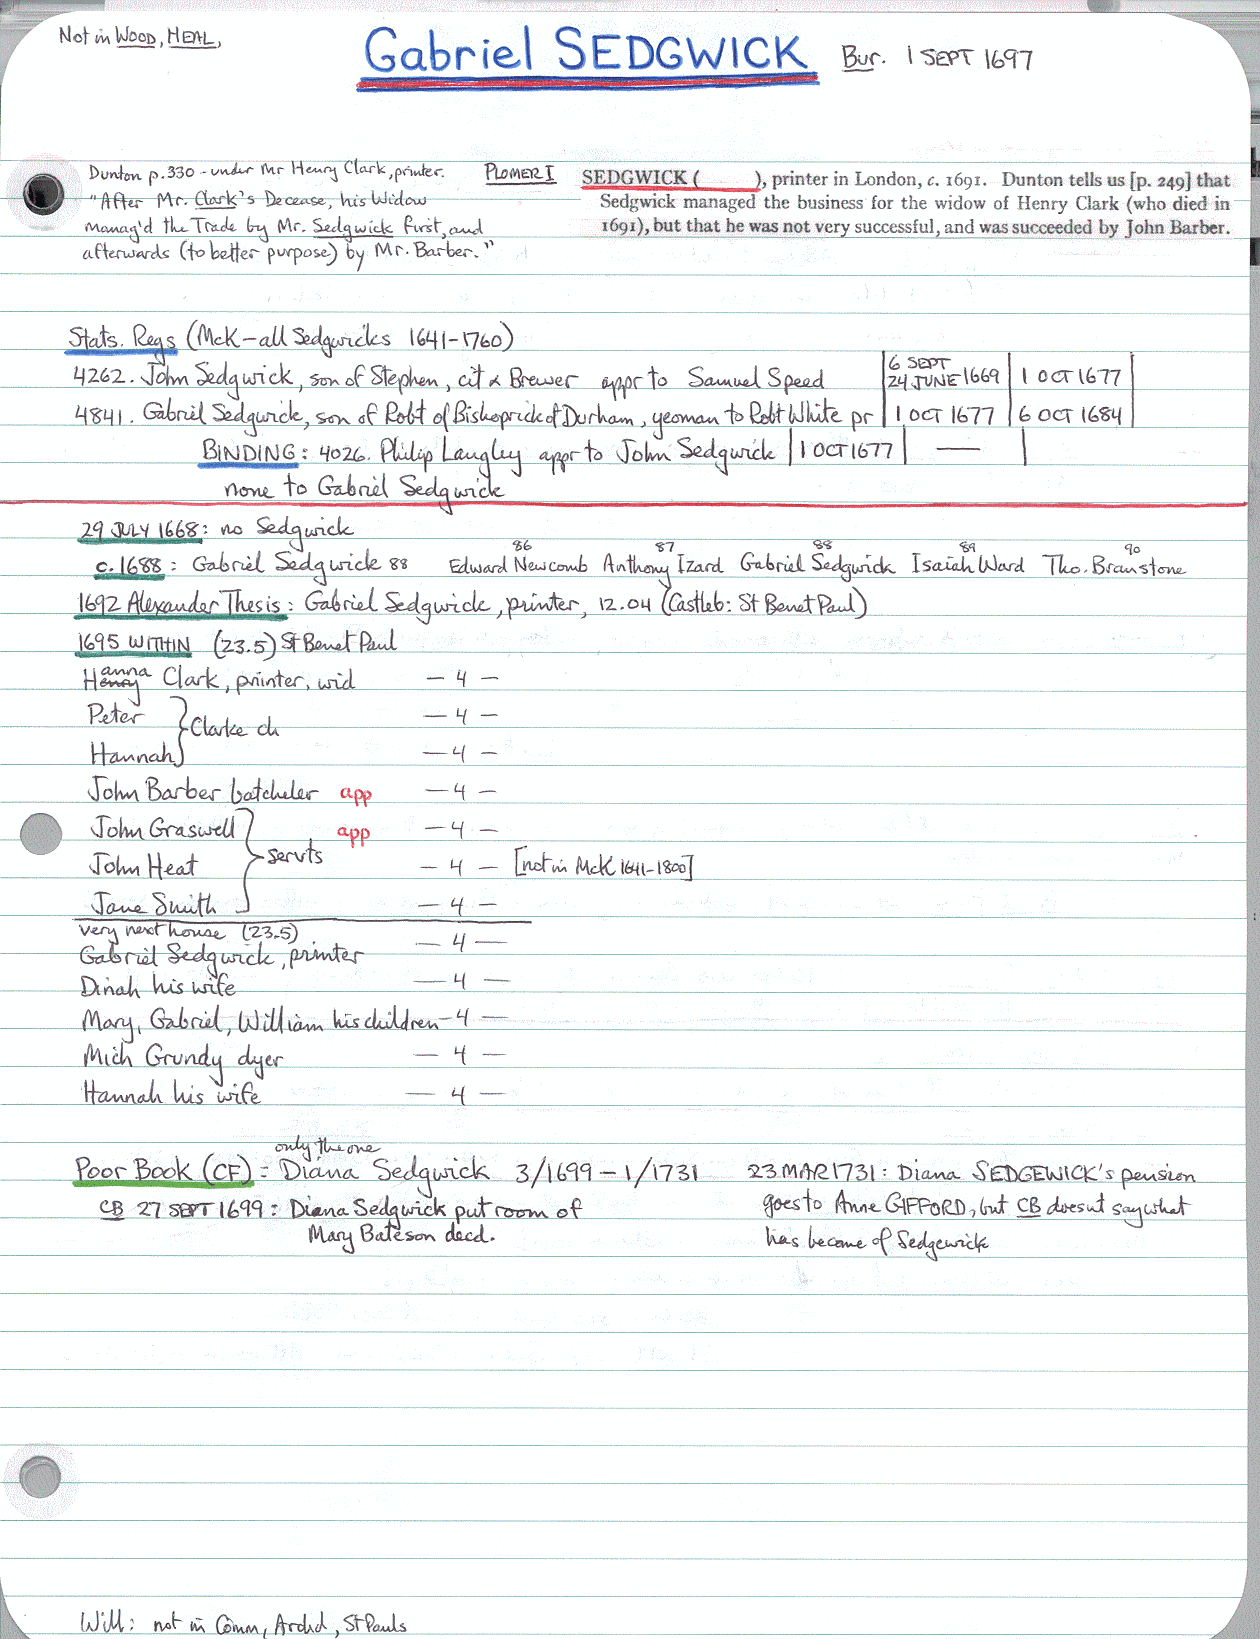 Not in WOOD, HEAL,
Gabriel SEDGWICK Bur. 1 SEPT 1697
Dunton p.330 - under Mr Henry Clark, printer.
"After Mr. Clark's Decease, his Widow
manag'd the Trade by Mr. Sedgwick first, and
afterwards (to better purpose) by Mr. Barber."
PLOMER I
SEDGWICK ( ), printer in London, c. 1691. Dunton tells us [p. 249] that
Sedgwick managed the business for the widow of Henry Clark (who died in
1691), but that he was not very successful, and was succeeded by John Barber.
Stats. Regs (McK-all Sedgwicks 1641-1760)
4262. John Sedgwick, son of Stephen, cit & Brewer appr to Samuel Speed | 6 SEPT 24 JUNE 1669 | 1 OCT 1677 |
4841. Gabriel Sedgwick, son of Robt of Bishoprick of Durham, yeoman to Robt White pr | 1 OCT 1677 | 6 OCT 1684 |
BINDING: 4026. Philip Langley appr to John Sedgwick | 1 OCT 1677 | — |
none to Gabriel Sedgwick
29 JULY 1668: no Sedgwick
86 87 88 89 90
c.1688: Gabriel Sedgwick 88 Edward Newcomb Anthony Izard Gabriel Sedgwick Isaiah Ward Tho. Branstone
1692 Alexander Thesis: Gabriel Sedgwick, printer, 12.04 (Castleb: St Benet Paul)
1695 WITHIN (23.5) St Benet Paul
anna
Henry Clark, printer, wid - 4 -
Peter - 4 -
} Clarke ch
Hannah - 4 -
John Barber batcheler app - 4 -
John Graswell app - 4 -
} servts
John Heat - 4 - [not in McK 1641-1800]
Jane Smith - 4 -
very next house (23.5)
Gabriel Sedgwick, printer - 4 -
Dinah his wife - 4 -
Mary, Gabriel, William his children - 4 -
Mich Grundy dyer - 4 -
Hannah his wife - 4 -
only the one
Poor Book (CF) = Diana Sedgwick 3/1699 - 1/1731
CB 27 SEPT 1699: Diana Sedgwick put room of
Mary Bateson decd.
23 MAR 1731: Diana SEDGEWICK's pension
goes to Anne GIFFORD, but CB doesnt say what
has become of Sedgewick
Will: not in Comm, Archd, St Pauls